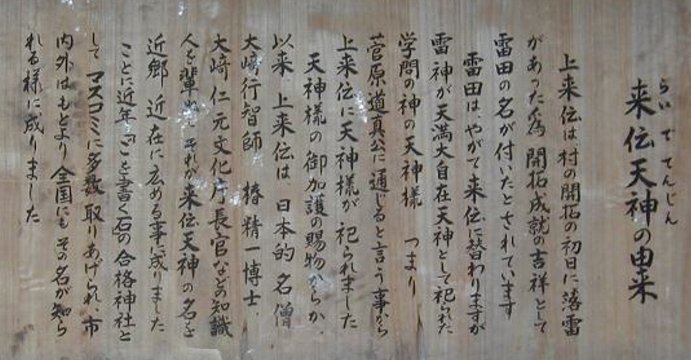 らいでてんじん
来伝天神の由来
上来伝は村の開拓の初日に落雷
があった為開拓成就の吉祥として
雷田の名が付いたとされています
雷田は、やがて来伝に替わりますが
雷神が天満大自在天神として祀られた
学問の神の天神様 つまり
菅原道真公に通じると言う事から
上来伝に天神様が祀られました
天神様の御加護の賜物からか、
以来、上来伝は、日本的名僧
大崎行智師、椿精一博士、
大崎仁元文化庁長官などの知識
人を輩出 それが来伝天神の名を
近郷 近在に広める事に成りました
ことに近年 を書く石の合格神社と
して マスコミに多数取りあげられ、市
内外はもとより全国にもその名が知ら
れる様に成りました